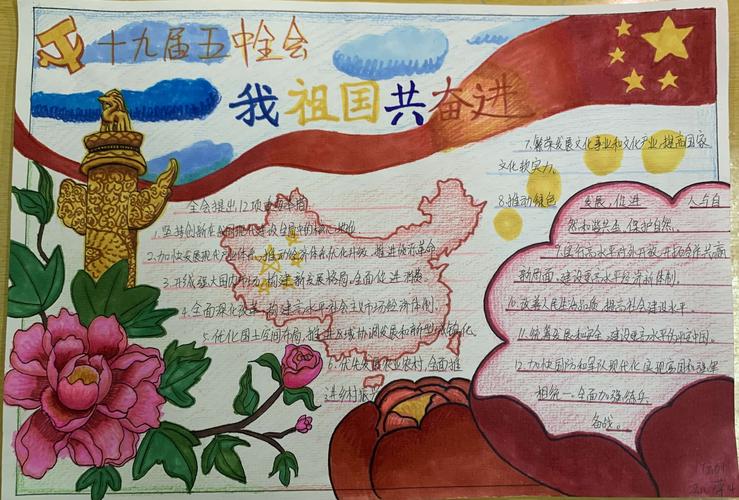 十九届五中全会
我祖国共奋进
全会提出12项重要举措
1.坚持创新在
2.加快发展现代产业体系,推动经济体系优化升级
3.构建新发展格局,全面促进消费
4.全面深化改革,构建高水平社会主义市场经济体制.
5.优化国土空间布局,推进区域协调发展和新型城镇化
6.优先发展农业农村,全面推
进乡村振兴
7.繁荣发展文化事业和文化产业,提高国家
文化软实力.
8.推动绿色 发展,促进 人与自
然和谐共生
9.实行高水平对外开放,开拓合作共赢
新局面
10.改善人民生活品质,提高社会建设水平.
11.统筹发展和安全,建设更高水平的平安中国.
12.加快国防和军队现代化,实现富国和强军
相统一.全面加强练兵
备战。